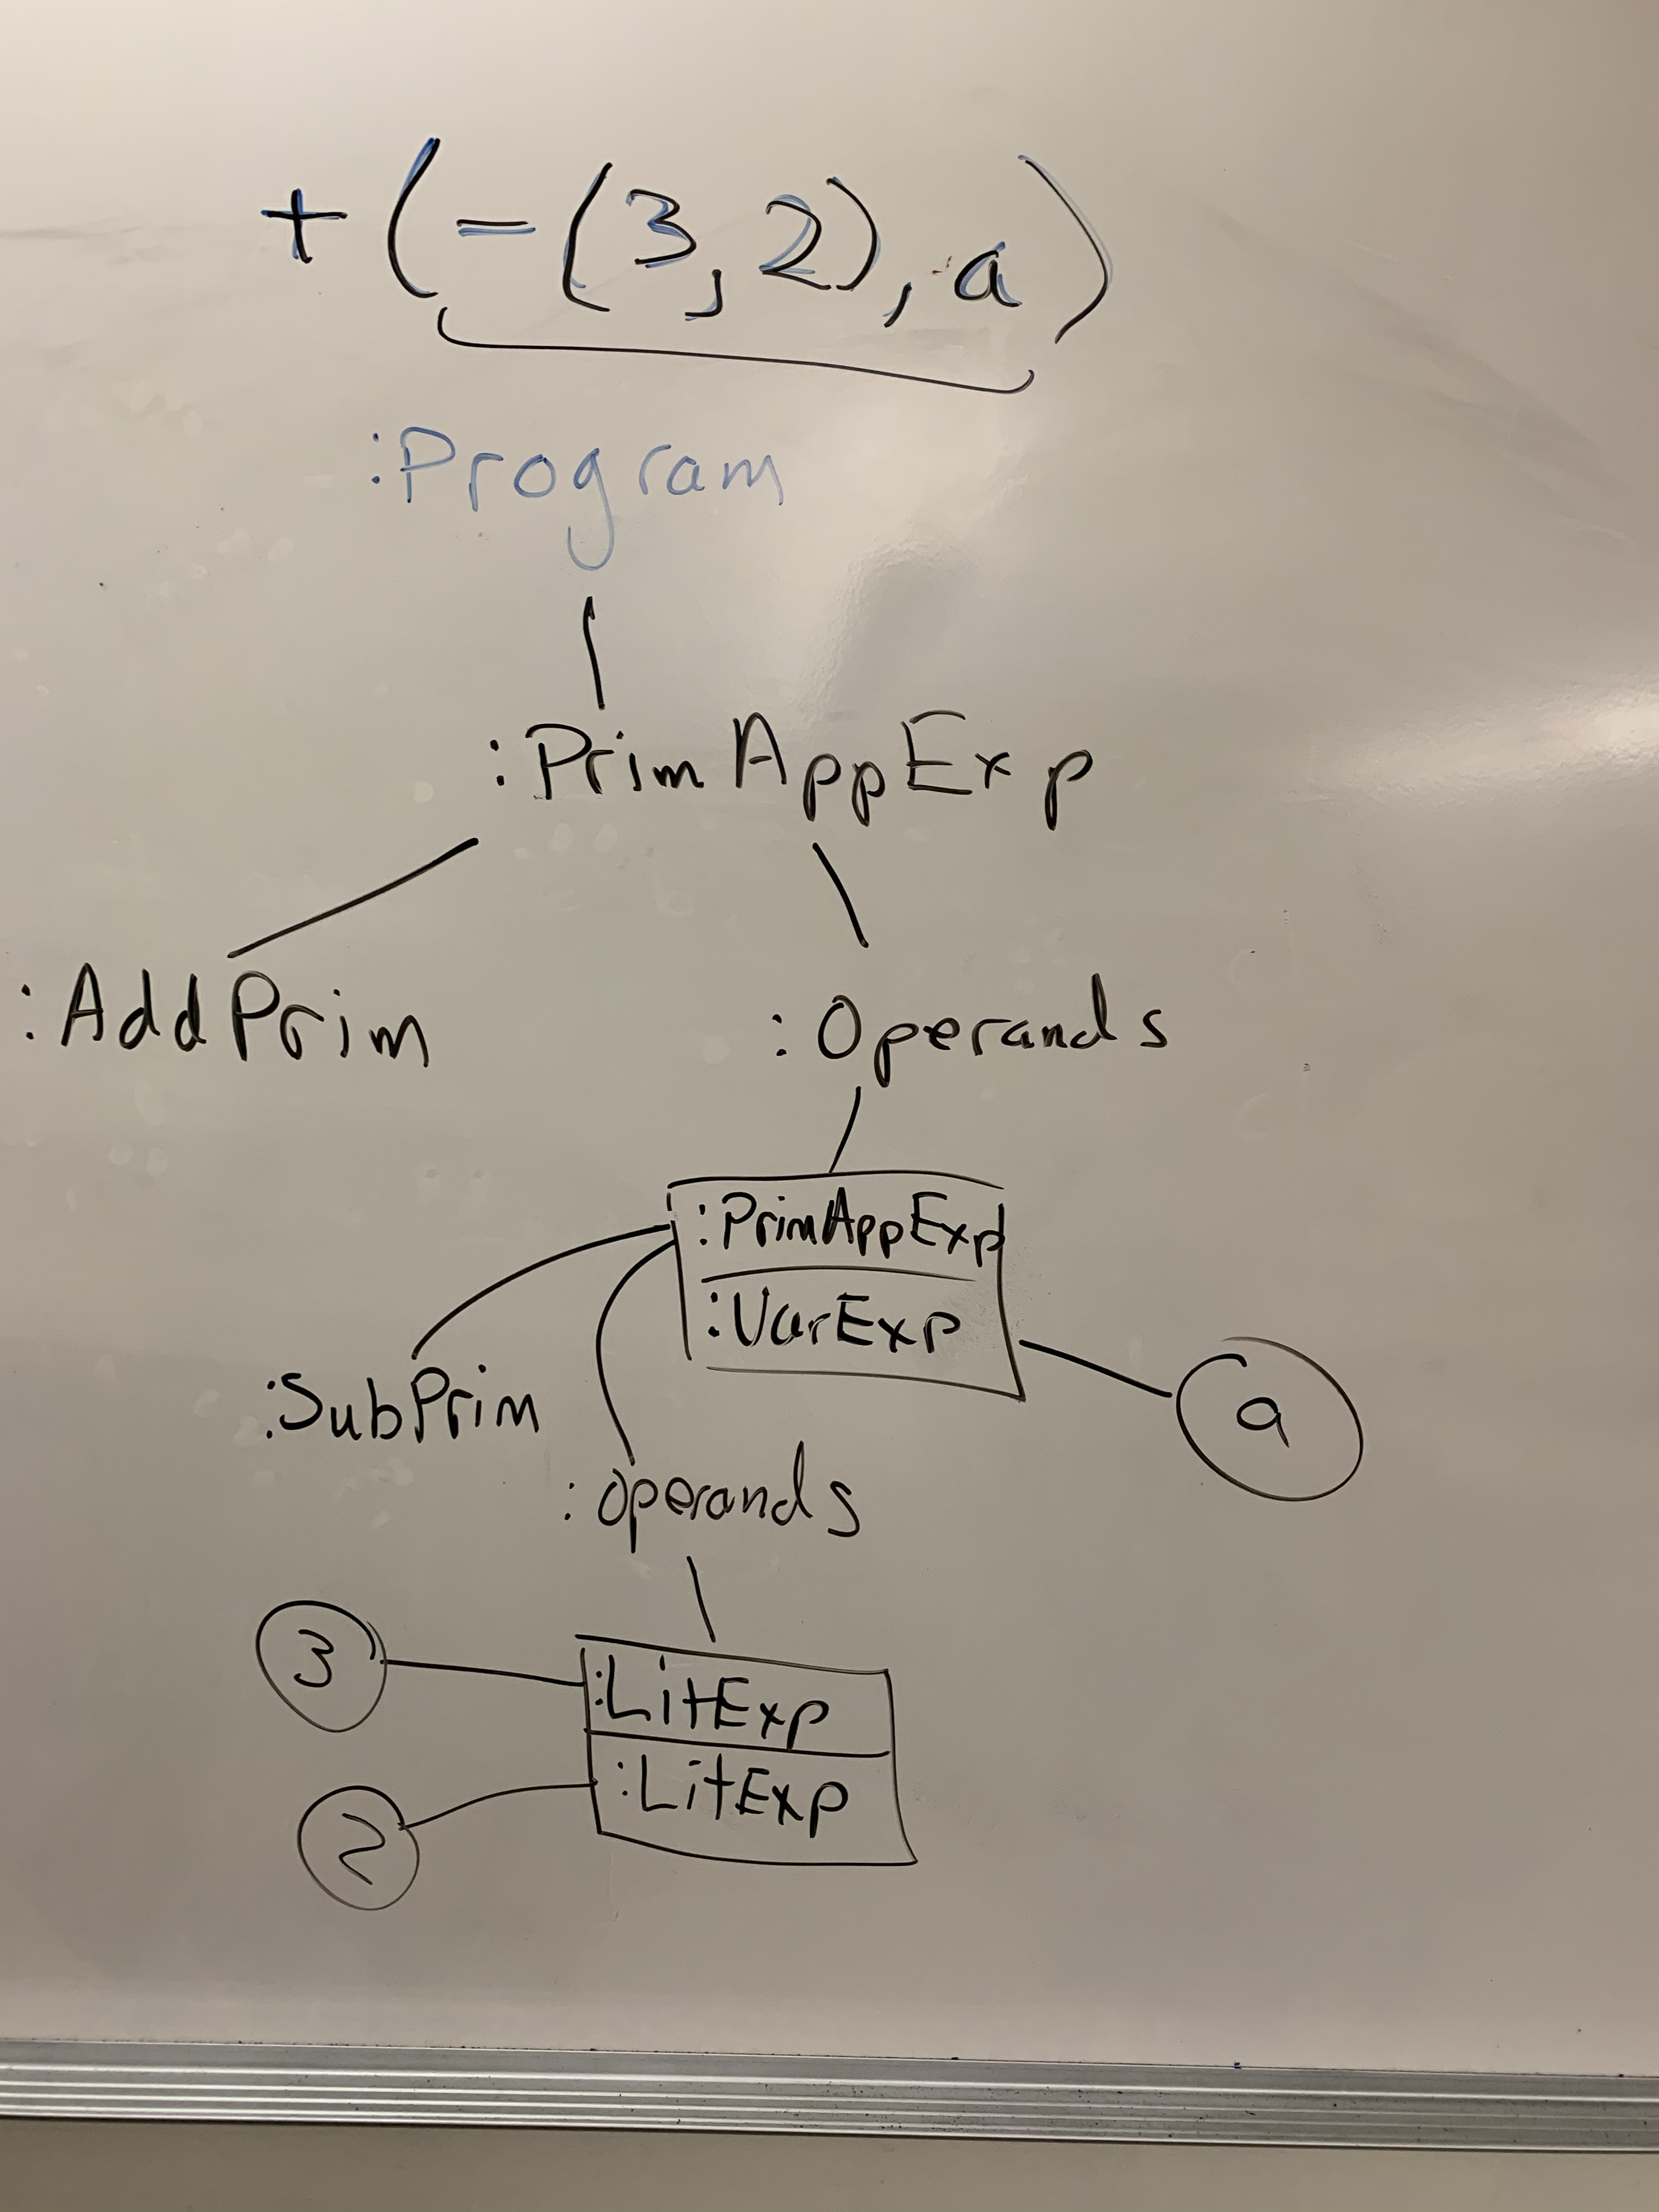 +(-(3,2),a)
:Program
:PrimAppExp
:AddPrim
:Operands
:PrimAppExp
:VarExp
a
:SubPrim
:operands
3
:LitExp
2
:LitExp